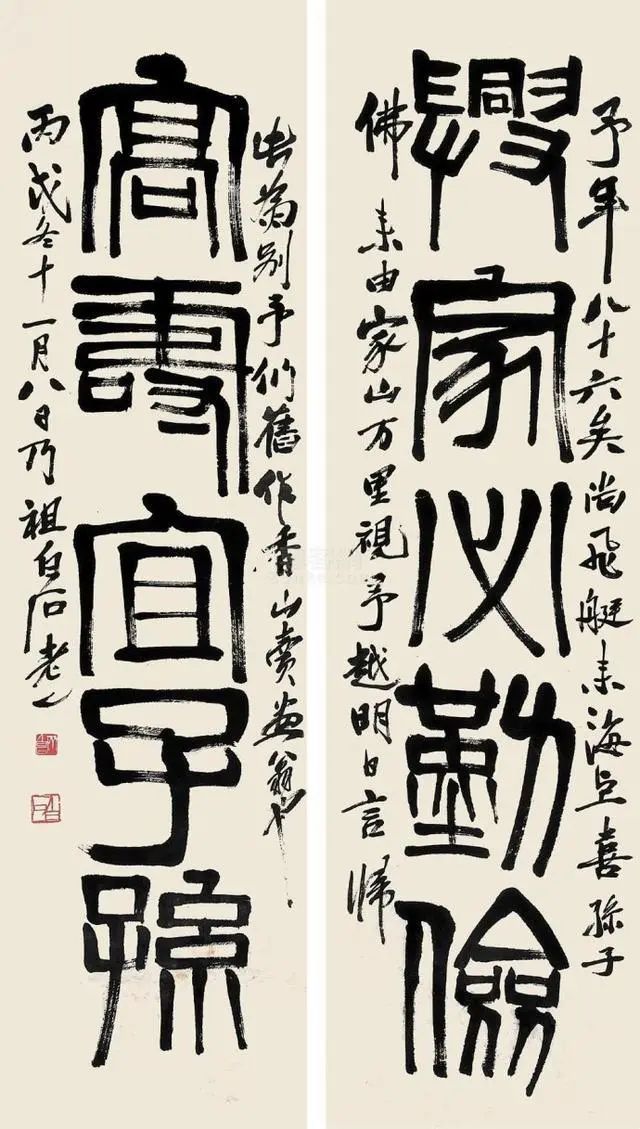 予年八十六矣尚飛艇来海上喜孫子
興家必勤儉
佛来由家山万里視予越明日言帰
此為別予們舊作香山賣画翁也
高壽宜子孫
丙戌冬十一月八日乃祖白石老人